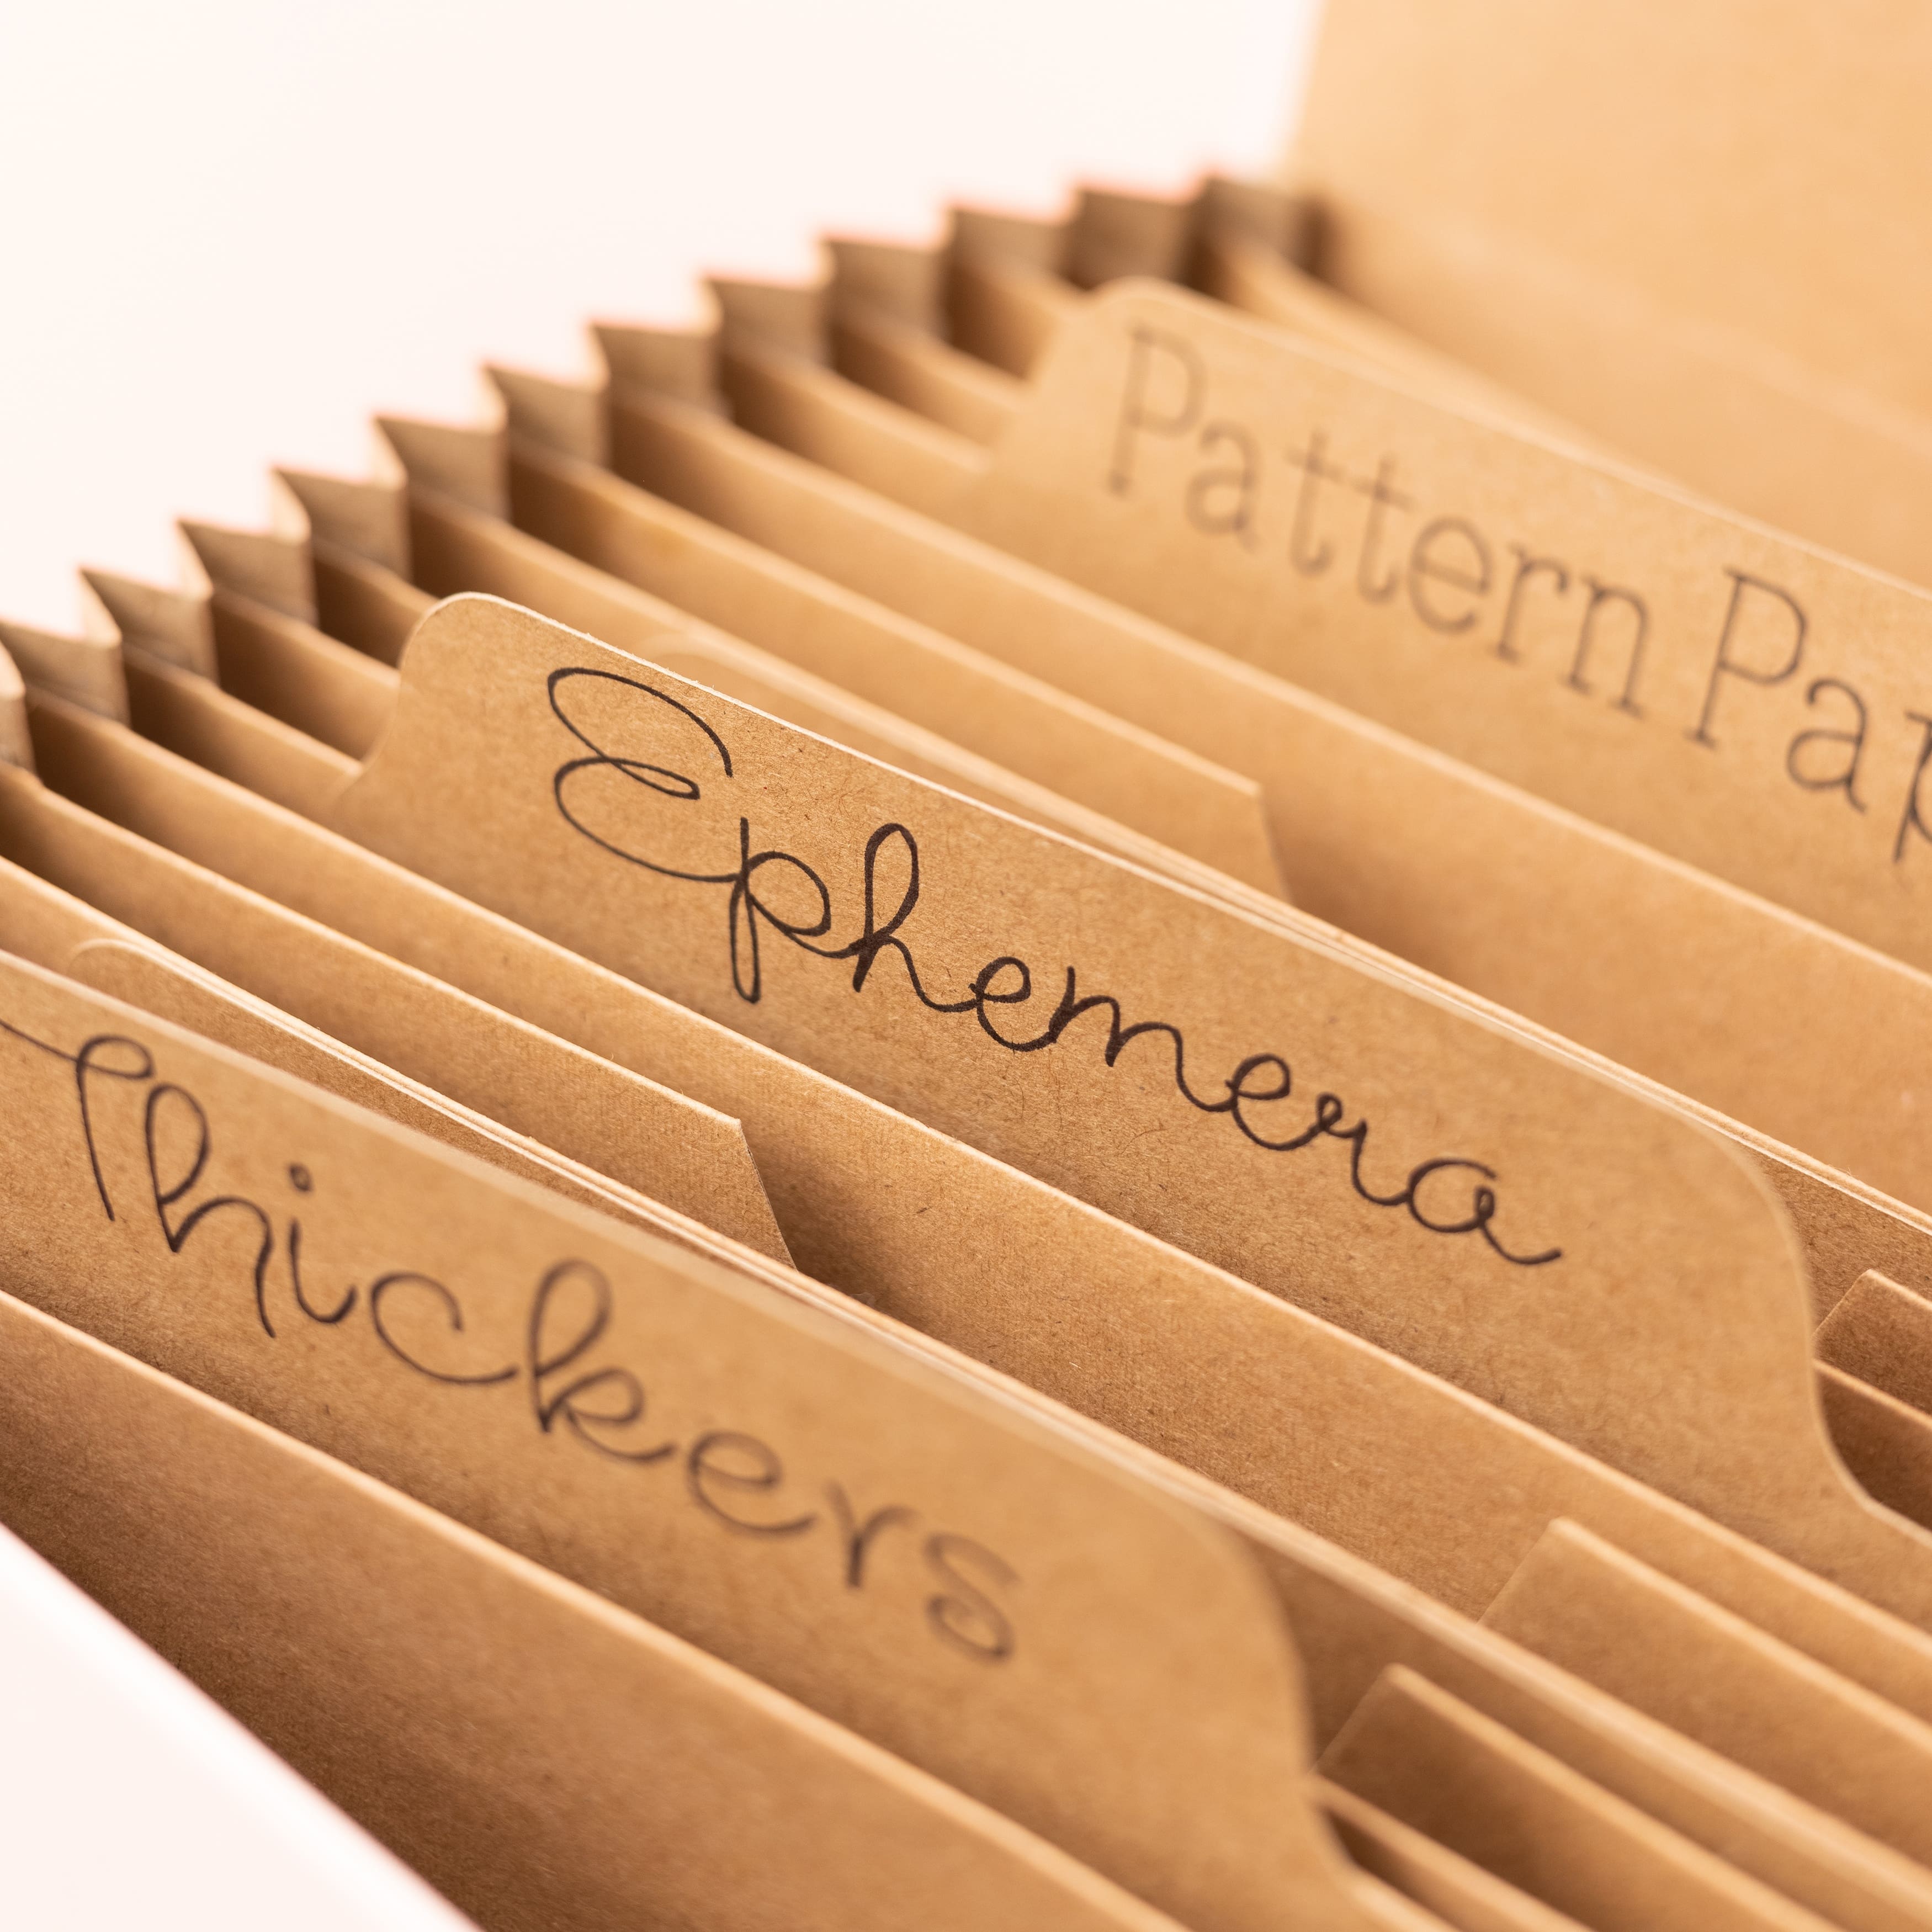 Pattern Pap
Ephemera
Thickers